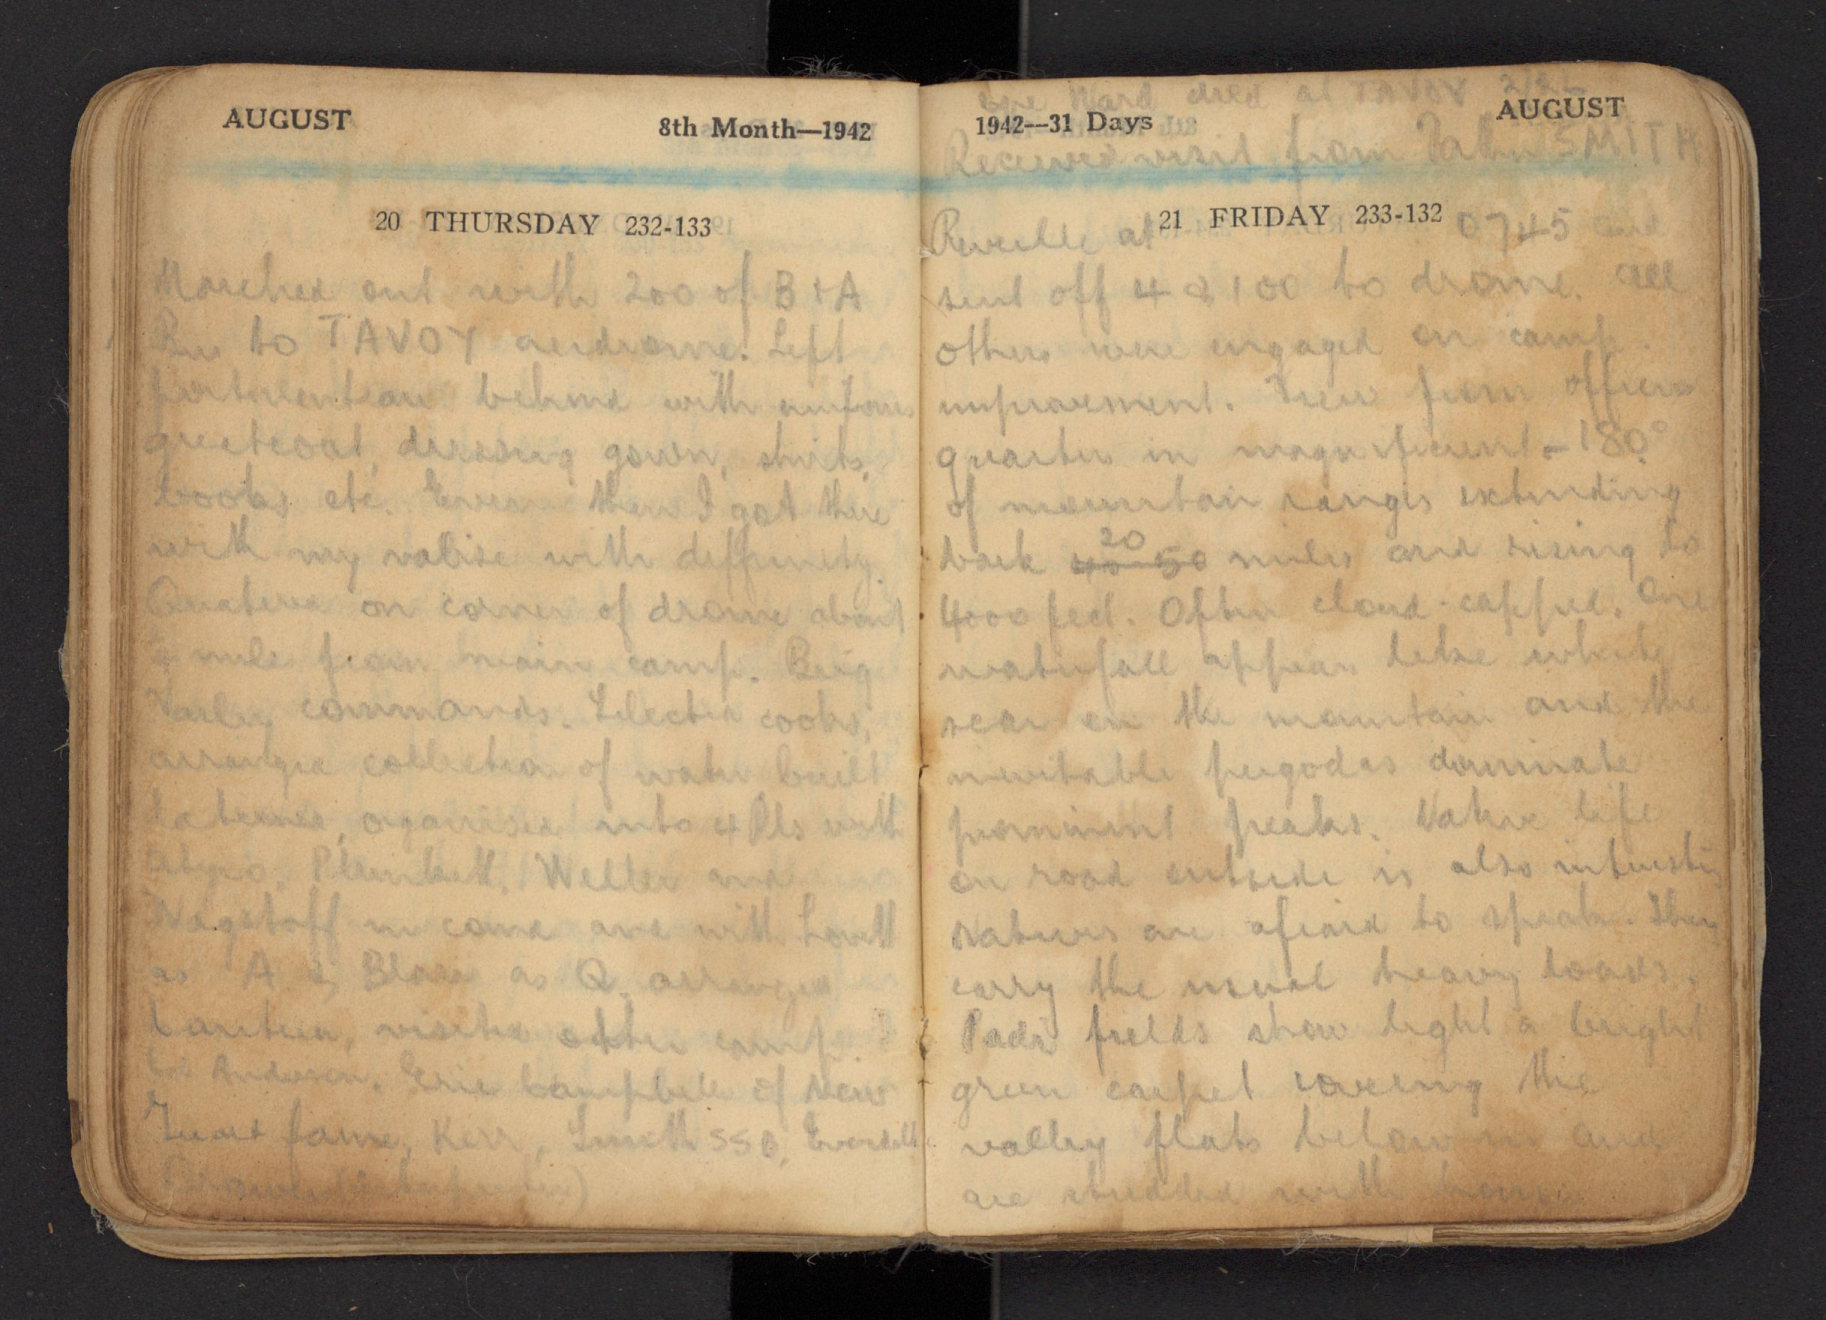 AUGUST
8th Month—1942
20 THURSDAY 232-133
Marched out with 200 of B & A
to TAVOY aerdrome. Left
behind with uniforms
greatcoat, dressing gown, shirts,
books etc. Even then I got there
with my valise with difficulty.
Quartered on corner of drome about
mile from main camp. Brig
Varley commands. Selected cooks,
arranged collection of water built
latrines, organised into 4 Pls with
Plunkett, Weller and
Wagstaff in comd and with Lovett
as A & Blair as Q. arranged
Canteen, visited other camp.
Anderson, Eric Campbell of New
Guard fame, Kerr, Smith SSO,
AUGUST
1942—31 Days
Cpe Ward died at TAVOY 2/26
Received visit from SMITH
21 FRIDAY 233-132
Reveille at 0745 and
sent off 4 & 100 to drome. All
others were engaged on camp
improvement. View from officers
quarters is magnificent – 180°
of mountain ranges extending
back 20 40-50 miles and rising to
4000 feet. Often cloud-capped. One
waterfall appears like white
scar on the mountain and the
inevitable pagodas dominate
prominent peaks. Native life
on road outside is also interesting
Natives are afraid to speak. They
carry the usual heavy loads.
Padi fields show light & bright
green carpet covering the
valley flats below us and
are studded with